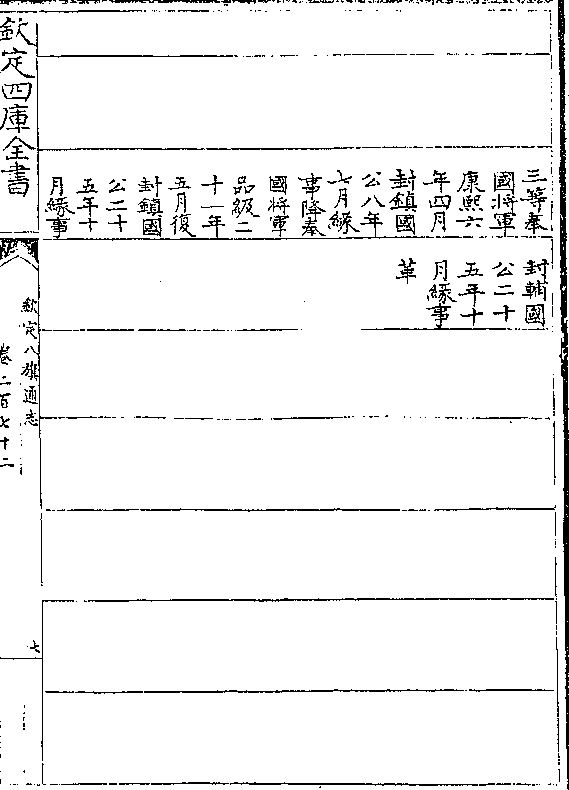 三等奉
國將軍
康熙六
年四月
封鎮國
公八年
七月緣
事降奉
國將軍
品級二
十一年
五月復
封鎮國
公二十
五年十
月緣事
封輔國
公二十
五年十
月緣事
革
欽定四庫全書
欽定八旗通志
卷二百七十二
七